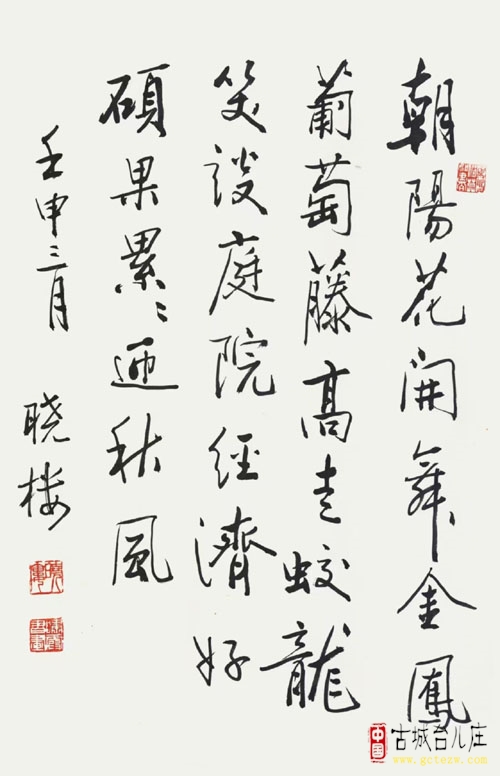 朝陽花開舞金鳳
葡萄藤高走蛟龍
笑談庭院經濟好
碩果累々迎秋風
壬申三月
晓楼
中国
古城台儿庄
www.gctezw.com